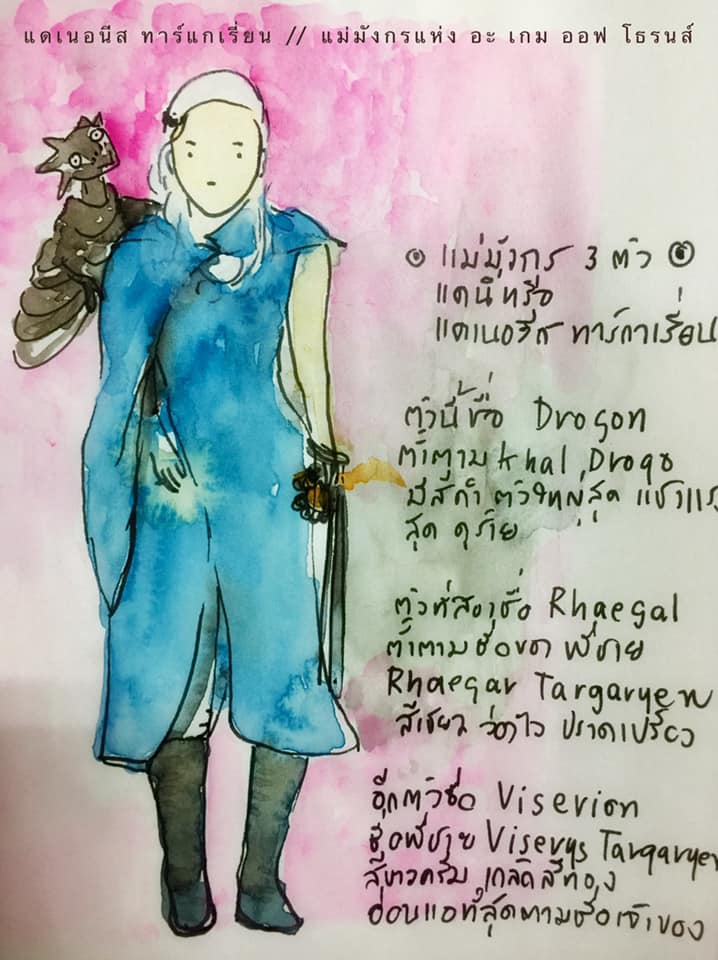 แดเนอนีส ทาร์แกเรี่ยน // แม่มังกรแห่ง อะ เกม ออฟ โธรนส์
แม่มังกร 3 ตัว
แดนี่หรือ
แดเนอรีส ทาร์กาเรี่ยน
ตัวนี้ชื่อ Drogon
ตั้งตาม khal Drogo
มีสีดำ ตัวใหญ่สุด แข็งแรง
สุด ดุร้าย
ตัวที่สองชื่อ Rhaegal
ตั้งตามชื่อของ พี่ชาย
Rhaegar Targaryen
สีเขียว ว่องไว ปราดเปรียว
อีกตัวชื่อ Viserion
ชื่อพี่ชาย Viserys Targaryen
สีขาวครีม เกล็ดสีทอง
อ่อนแอที่สุดตามชื่อเจ้าของ